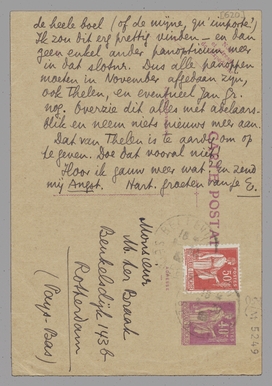 de heele boel (of de mijne, qu'importe)
Ik zou dit erg prettig vinden – en dan
geen enkel ander panopticum meer
in dat slotnr. Dus alle panoppen
moeten in November afgedaan zijn,
ook Thelen, en eventueel Jan Gr.
nog. Overzie dit alles met adelaars-
blik en neem niets nieuws meer aan.
Dat van Thelen is te aardig om op
te geven. Doe dat vooral niet.
Hoor ik gauw meer wat? En zend
mij Angst. Hart. groeten van je E.
CARTE POSTALE
Monsieur
M. ter Braak
Beukelsdijk 143b
Rotterdam
(Pays-Bas)
50c
40c